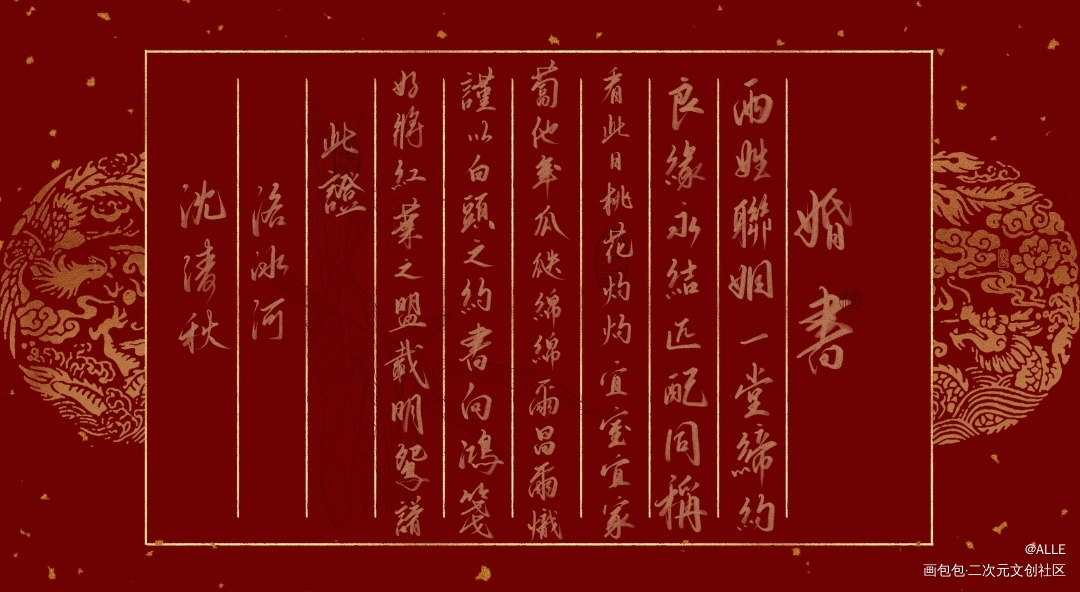 婚書
兩姓聯姻一堂締約
良緣永結匹配同稱
看此日桃花灼灼宜室宜家
蔔他年瓜瓞綿綿爾昌爾熾
謹以白頭之約書向鴻箋
好將紅葉之盟載明鴛譜
此證
洛冰河
沈清秋
@ALLE
画包包·二次元文创社区